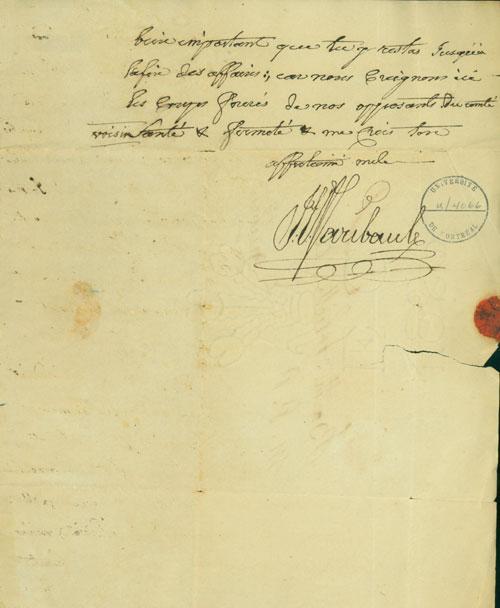 bien important que tu y restas jusqu'à
la fin des affaires, car nous craignons ici
les coups fourés de nos opposants du comté
voisin Santé & fermeté & me crois ton
affectioné
J. Faribault
UNIVERSITÉ
u/4066
DE MONTRÉAL